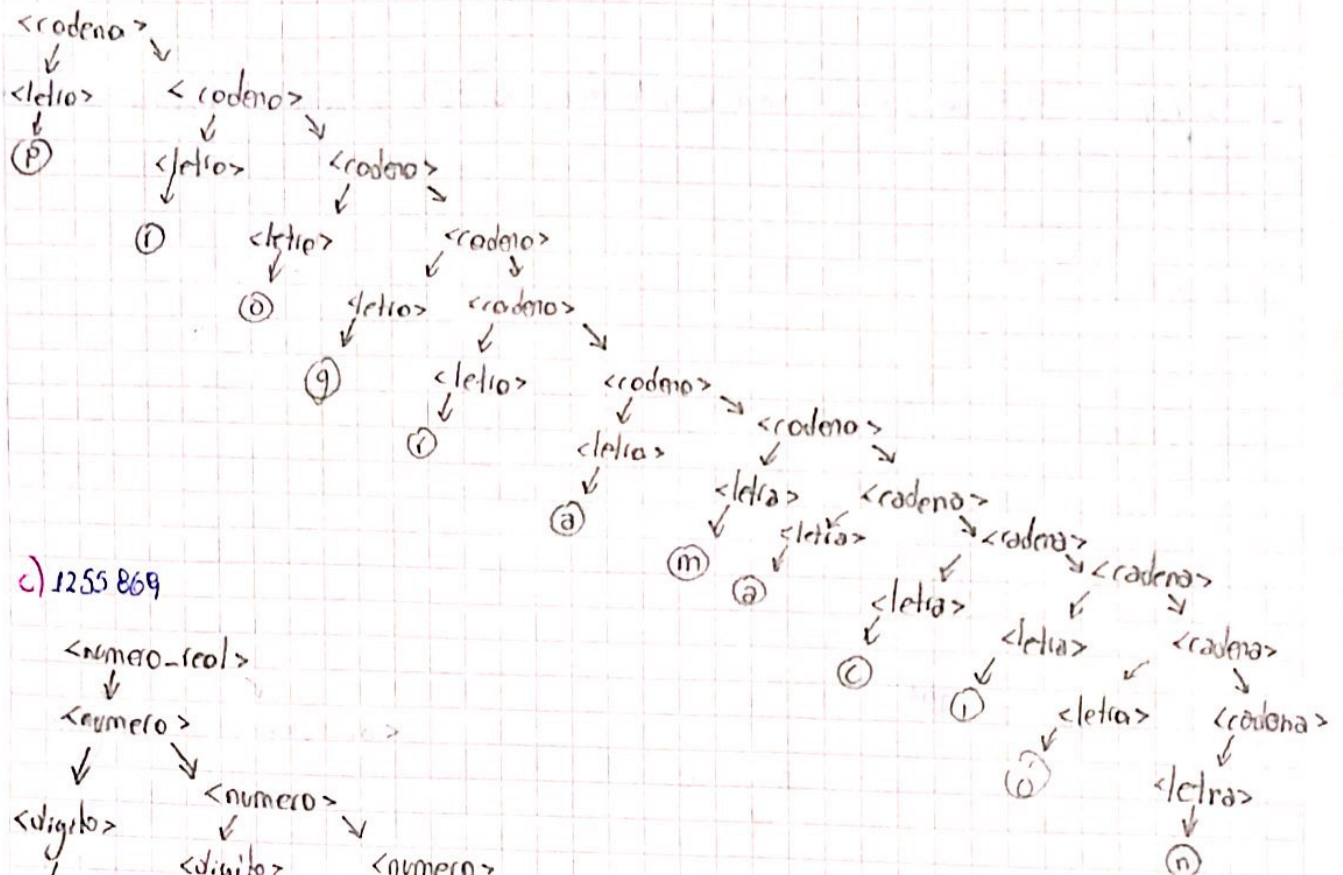 <cadena>
<letra> <cadena>
p <letra> <cadena>
r <letra> <cadena>
o <letra> <cadena>
g <letra> <cadena>
r <letra> <cadena>
a <letra> <cadena>
m <letra> <cadena>
a <letra> <cadena>
c <letra> <cadena>
i <letra> <cadena>
ó <letra>
n
c) 1255869
<numero_real>
<numero>
<digito> <numero>
<digito> <numero>